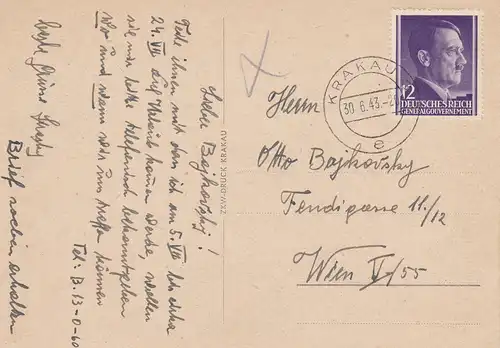 Lieber Bojkovsky!
Teile ihnen mit dass ich am 5. VII bis
24. VII auf Urlaub kommen werde, wollen
sie mir bitte telefonisch bekanntgeben
wo und wann wir uns treffen können
Tel: B. 13-0-60
Brief soeben erhalten
beste Grüße
ZKW-DRUCK KRAKAU
KRAKAU
30.6.43
e
12
DEUTSCHES REICH
GENERALGOUVERNEMENT
Herrn
Otto Bojkovsky
Fendigasse 11/12
Wien V/55